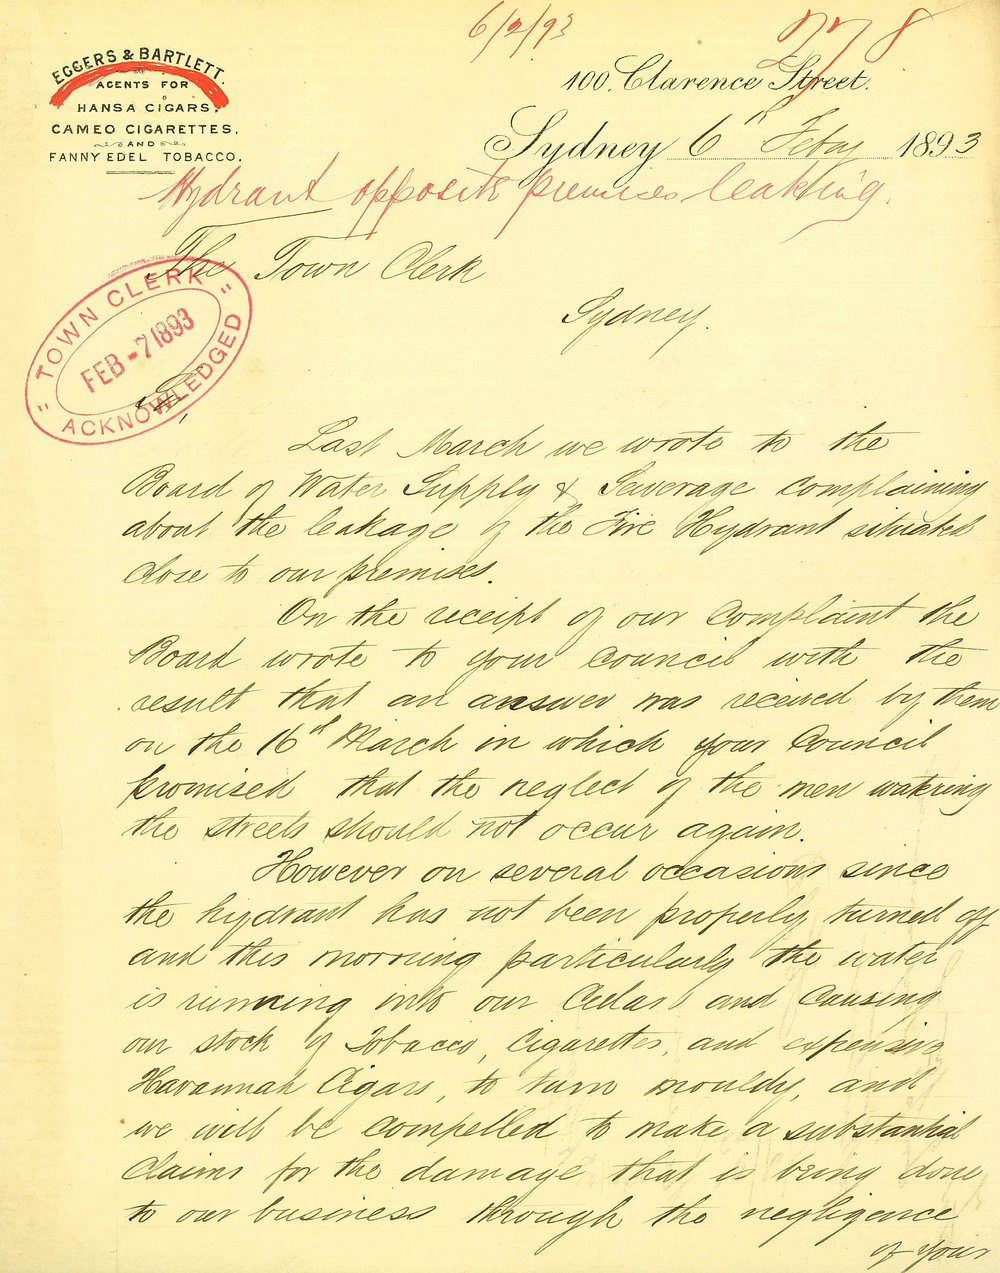 6/2/93
EGGERS & BARTLETT.
AGENTS FOR
HANSA CIGARS,
CAMEO CIGARETTES,
AND
FANNY EDEL TOBACCO.
100, Clarence Street.
Sydney 6th Feby 1893
Hydrant opposite premises leaking.
The Town Clerk
Sydney.
"TOWN CLERK"
FEB -7 1893
ACKNOWLEDGED
Sir,
Last March we wrote to the
Board of Water Supply & Sewerage complaining
about the leakage of the Fire Hydrant situated
close to our premises.
On the receipt of our complaint the
Board wrote to your council with the
result that an answer was received by them
on the 16th March in which your Council
promised that the neglect of the men watering
the streets should not occur again.
However on several occasions since
the hydrant has not been properly turned off
and this morning particularly the water
is running into our Cellar and causing
our stock of Tobacco, Cigarettes, and expensive
Havannah Cigars, to turn mouldy, and
we will be compelled to make a substantial
claims for the damage that is being done
to our business through the negligence
of your